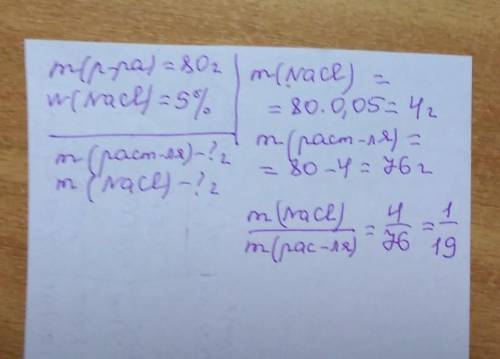 m(р-ра) = 80г
w(NaCl) = 5%
m(раст-ля) - ? г
m(NaCl) - ? г
m(NaCl) =
= 80 · 0,05 = 4г
m(раст-ля) =
= 80 - 4 = 76г
m(NaCl) / m(рас-ля) = 4/76 = 1/19